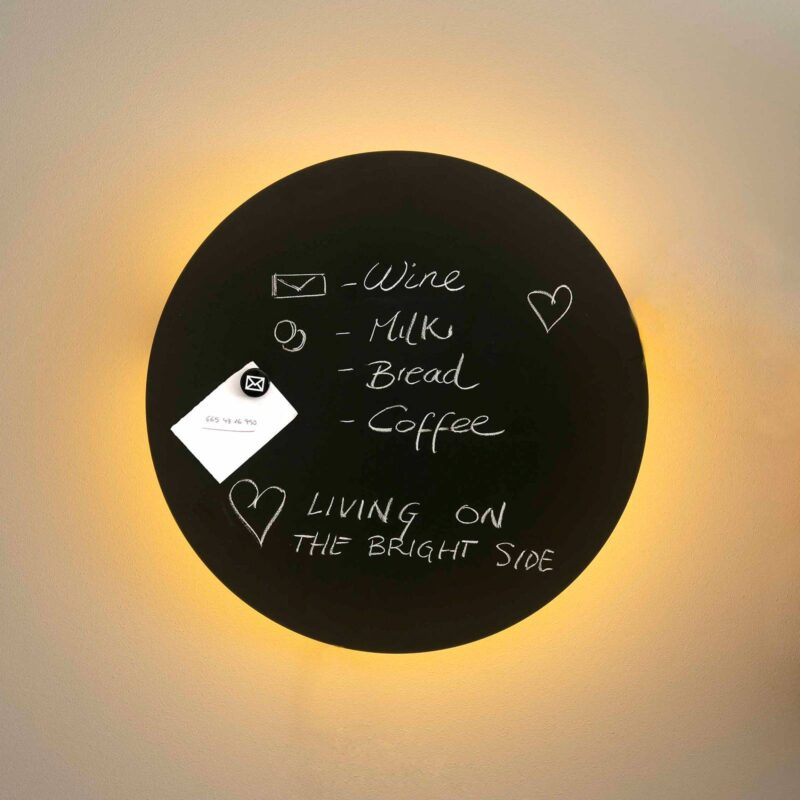 - Wine
- Milk
- Bread
- Coffee
665 48 26 950
LIVING ON
THE BRIGHT SIDE